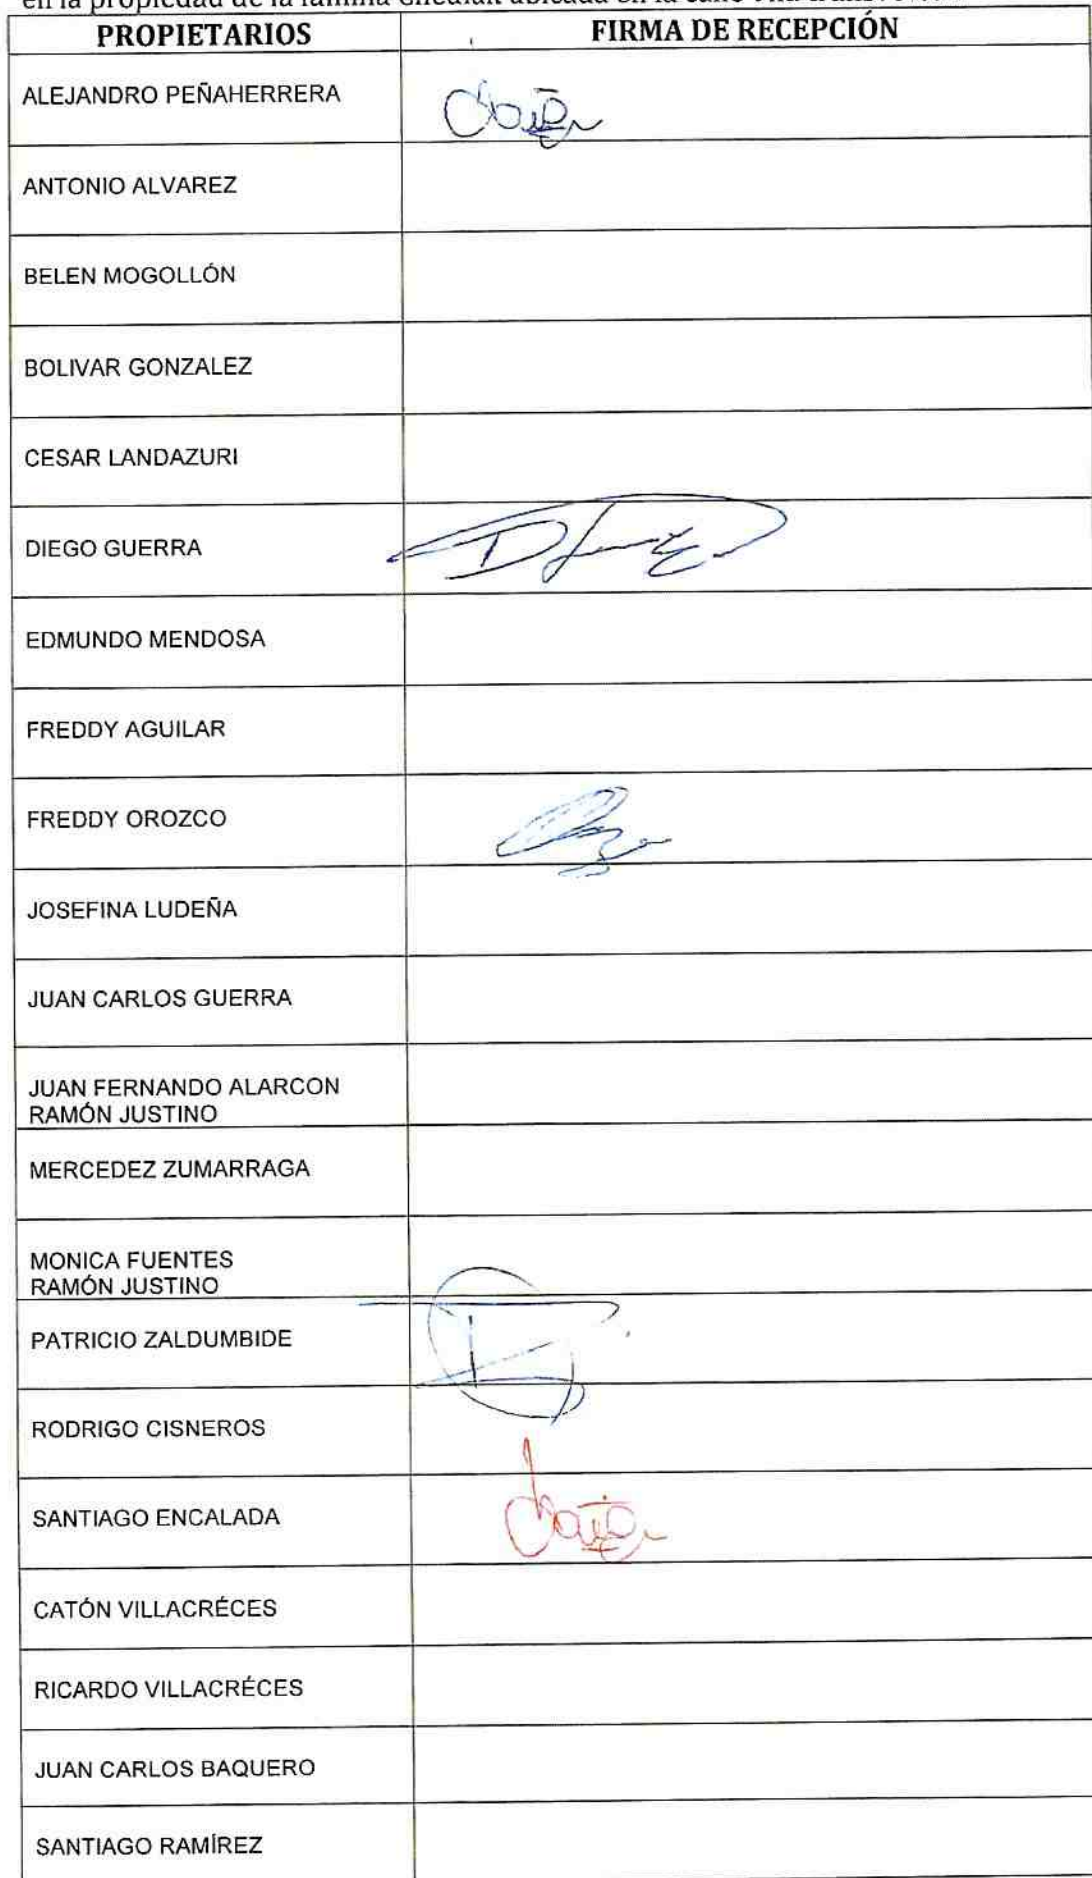 en la propiedad de la familia
ubicada en la calle
PROPIETARIOS FIRMA DE RECEPCIÓN
ALEJANDRO PEÑAHERRERA
ANTONIO ALVAREZ
BELEN MOGOLLÓN
BOLIVAR GONZALEZ
CESAR LANDAZURI
DIEGO GUERRA
EDMUNDO MENDOSA
FREDDY AGUILAR
FREDDY OROZCO
JOSEFINA LUDEÑA
JUAN CARLOS GUERRA
JUAN FERNANDO ALARCON
RAMÓN JUSTINO
MERCEDEZ ZUMARRAGA
MONICA FUENTES
RAMÓN JUSTINO
PATRICIO ZALDUMBIDE
RODRIGO CISNEROS
SANTIAGO ENCALADA
CATÓN VILLACRÉCES
RICARDO VILLACRÉCES
JUAN CARLOS BAQUERO
SANTIAGO RAMÍREZ